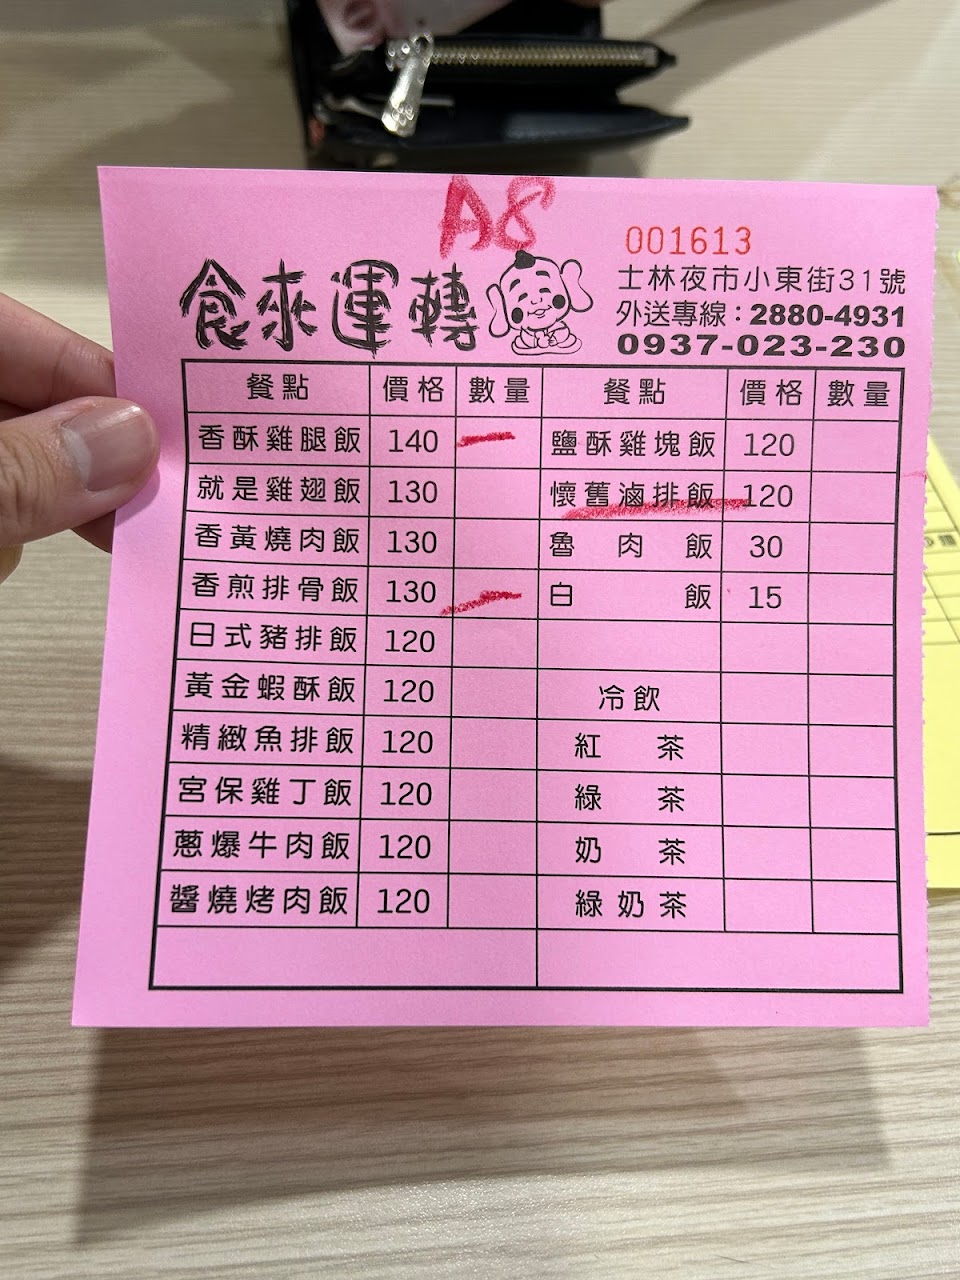 A8
001613
食來運轉
士林夜市小東街31號
外送專線：2880-4931
0937-023-230
餐點 價格 數量 餐點 價格 數量
香酥雞腿飯 140 一 鹽酥雞塊飯 120
就是雞翅飯 130 懷舊滷排飯 120
香黃燒肉飯 130 魯肉飯 30
香煎排骨飯 130 一 白飯 15
日式豬排飯 120
黃金蝦酥飯 120 冷飲
精緻魚排飯 120 紅茶
宮保雞丁飯 120 綠茶
蔥爆牛肉飯 120 奶茶
醬燒烤肉飯 120 綠奶茶